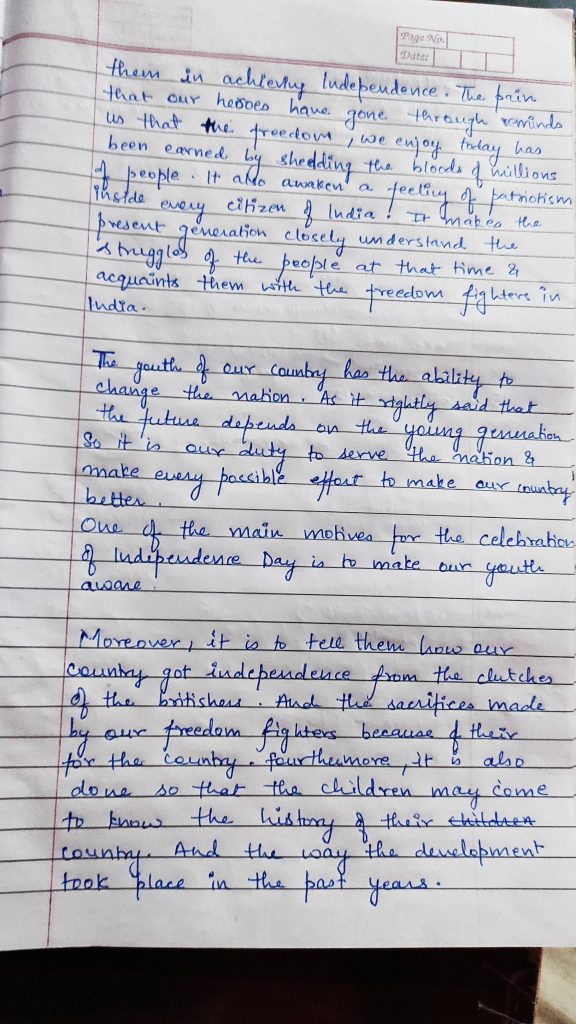 Page No.
Date:
them in achieving Independence. The pain
that our heroes have gone through reminds
us that the freedom, we enjoy today has
been earned by shedding the bloods of millions
of people. It also awaken a feeling of patriotism
inside every citizen of India. It makes the
present generation closely understand the
struggles of the people at that time &
acquaints them with the freedom fighters in
India.
The youth of our country has the ability to
change the nation. As it rightly said that
the future depends on the young generation
So it is our duty to serve the nation &
make every possible effort to make our country
better.
One of the main motives for the celebration
of Independence Day is to make our youth
aware.
Moreover, it is to tell them how our
country got independence from the clutches
of the britishers. And the sacrifices made
by our freedom fighters because of their
for the country. fourthermore, it is also
done so that the children may come
to know the history of their children
country. And the way the development
took place in the past years.